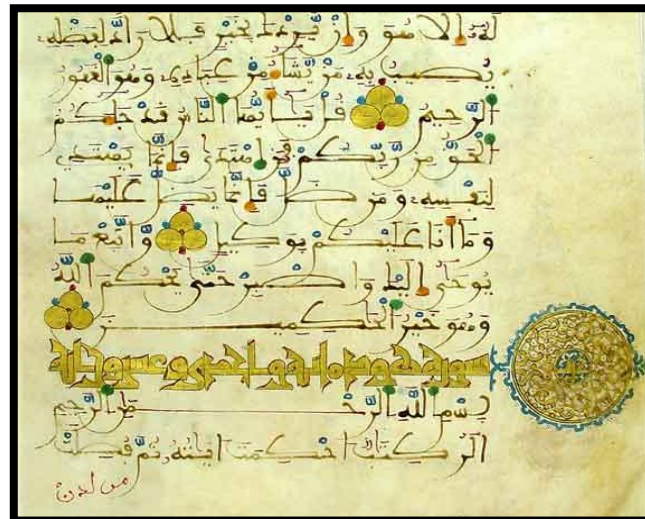 لَهُ إِلَّا هُوَ وَإِنْ يُرِدْكَ بِخَيْرٍ فَلَا رَادَّ لِفَضْلِهِ
يُصِيبُ بِهِ مَنْ يَّشَاءُ مِنْ عِبَادِهِ وَهُوَ الْغَفُورُ
الرَّحِيمُ قُلْ يَٰأَيُّهَا النَّاسُ قَدْ جَاءَكُمُ
الْحَقُّ مِن رَّبِّكُمْ فَمَنِ اهْتَدَىٰ فَإِنَّمَا يَهْتَدِي
لِنَفْسِهِ وَمَن ضَلَّ فَإِنَّمَا يَضِلُّ عَلَيْهَا
وَمَا أَنَا عَلَيْكُم بِوَكِيلٍ وَّاتَّبِعْ مَا
يُوحَىٰ إِلَيْكَ وَاصْبِرْ حَتَّىٰ يَحْكُمَ اللَّهُ
وَهُوَ خَيْرُ الْحَٰكِمِينَ
سورة هود مائة وإحدى وعشرون آية
بِسْمِ اللَّهِ الرَّحْمَٰنِ الرَّحِيمِ
الر كِتَٰبٌ أُحْكِمَتْ ءَايَٰتُهُ ثُمَّ فُصِّلَتْ
من لدن